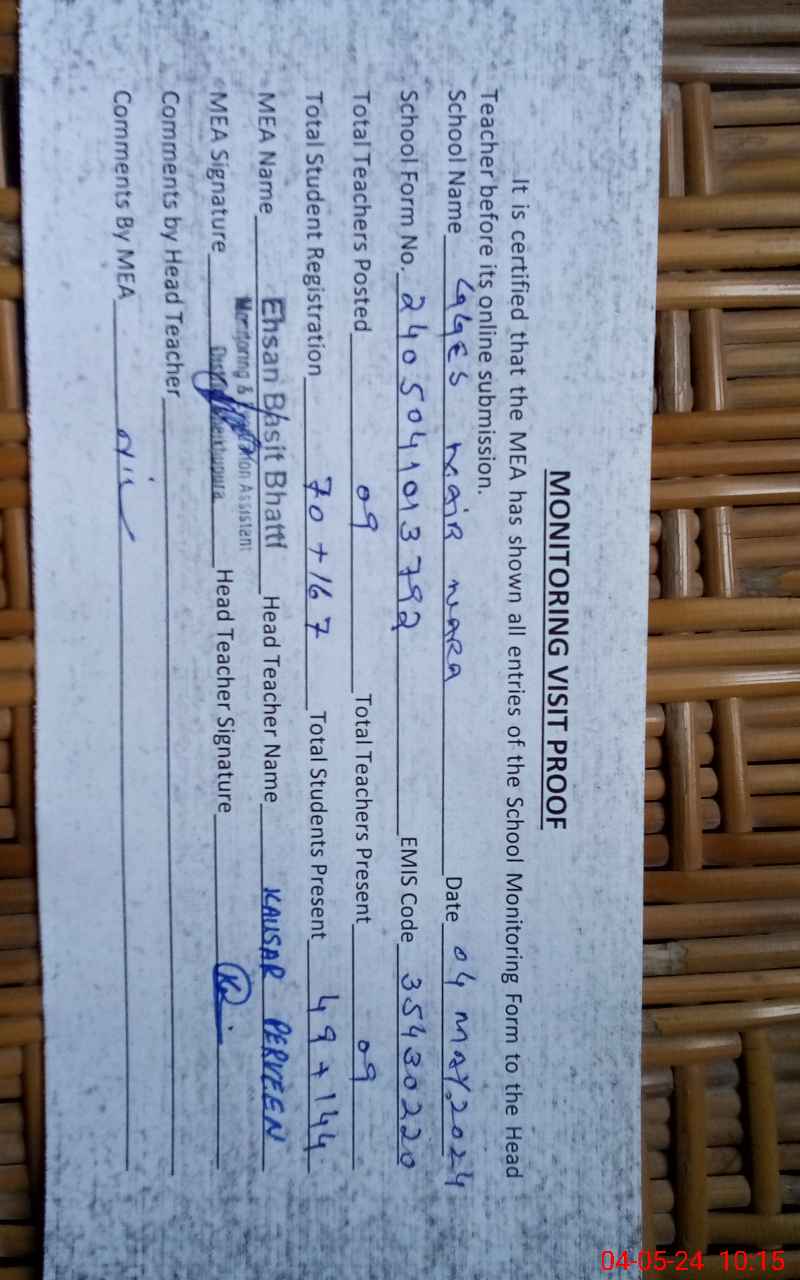 MONITORING VISIT PROOF
It is certified that the MEA has shown all entries of the School Monitoring Form to the Head
Teacher before its online submission.
School Name GGES MAIR WARA Date 04 MAY, 2024
School Form No. 2405041013792 EMIS Code 35430220
Total Teachers Posted 09 Total Teachers Present 09
Total Student Registration 70+167 Total Students Present 49+144
MEA Name Ehsan Basit Bhatti Head Teacher Name KAUSAR PERVEEN
Monitoring & Evaluation Assistant
MEA Signature Head Teacher Signature
Comments by Head Teacher
Comments By MEA
04-05-24 10:15